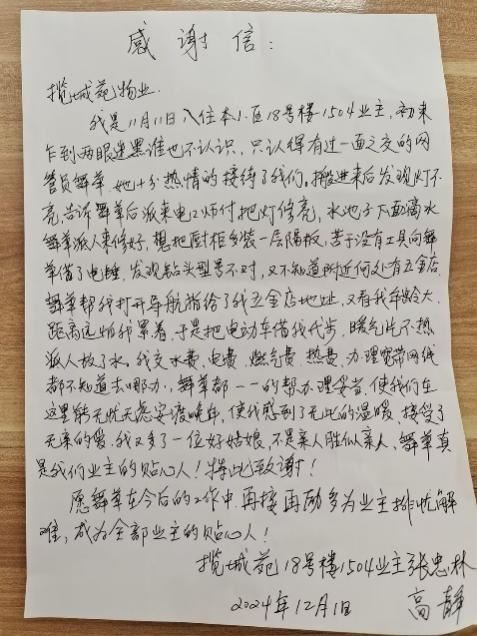 感谢信：
揽城苑物业.
我是11月11日入住本小区18号楼-1504业主，初来
乍到两眼迷黑谁也不认识，只认得有过一面之交的网
管员舞苹 她十分热情的接待了我们。搬进来后发现灯不
亮，告诉舞苹后派来电工师付把灯修亮，水池子下面漏水
舞苹派人来修好，想把厨柜多装一层隔板，苦于没有工具向舞
苹借了电锤，发现钻头型号不对，又不知道附近何处有五金店，
舞苹帮我打开导航指给了我五金店地址，又看我年龄大，
距离远怕我累着，于是把电动车借我代步，暖气片不热
派人放了水。我交水费、电费、燃气费、热费、办理宽带网线
都不知道去哪办，舞苹都一一的帮办理妥当，使我们在
这里能无忧无虑安度晚年，使我感到了无比的温暖，接受了
无亲的爱。我又多了一位好姑娘，不是亲人胜似亲人，舞苹真
是我们业主的贴心人！特此致谢！
愿舞苹在今后的工作中，再接再励多为业主排忧解
难，成为全部业主的贴心人！
揽城苑18号楼1504业主张忠林
高静
2024年12月1日